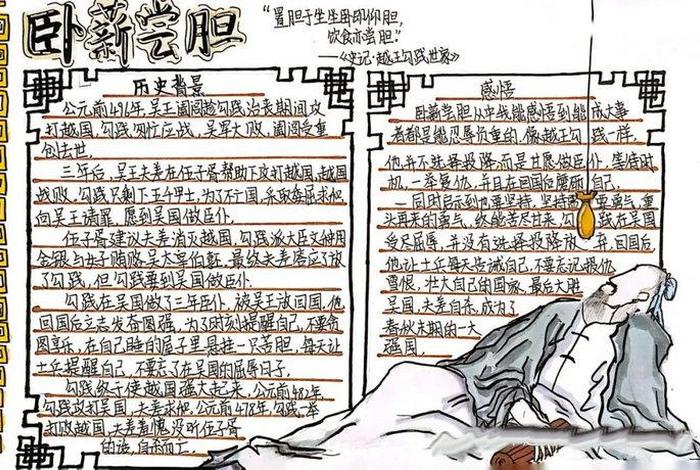 卧薪尝胆
"置胆于坐坐卧即仰胆,
饮食亦尝胆."
——《史记·越王勾践世家》
历史背景
公元前496年,吴王阖闾趁勾践治丧期间攻
打越国,勾践匆忙应战,吴军大败,阖闾受重
创去世.
三年后,吴王夫差在伍子胥帮助下攻打越国,越国
战败,勾践只剩下五千甲士,为了不亡国,采取委屈求和
向吴王请罪,愿到吴国做臣仆.
伍子胥建议夫差消灭越国,勾践派大臣文种用
金银与女子贿赂吴太宰伯嚭,最终夫差答应放
了勾践,但勾践要到吴国做臣仆.
勾践在吴国做了三年臣仆,被吴王放回国,他
回国后立志发奋图强,为了时刻提醒自己,不要贪
图享乐,在自己睡的屋子里悬挂一只苦胆,每天让
士兵提醒自己,不要忘了在吴国的屈辱日子.
勾践终于使越国强大起来,公元前482年,
勾践攻打吴国,夫差求和,公元前478年,勾践一举
打败越国,夫差羞愧,没听伍子胥
的话,自杀而亡.
感悟
卧薪尝胆从中我能感悟到能成大事
者都是能忍辱负重的,像越王勾践一样,
他并不选择投降,而是甘愿做臣仆,等待时
机,一举复仇,并且在回国后磨砺自己.
同时启示到也要坚持,坚持需要勇气,重
头再来的勇气,终能苦尽甘来,勾践在吴国
受尽屈辱,并没有选择投降放弃,回国后,
他让士兵每天告诫自己,不要忘记报仇
雪恨,壮大自己的国家,最后大胜
吴国,夫差自杀,成为了
春秋末期的一大
强国.